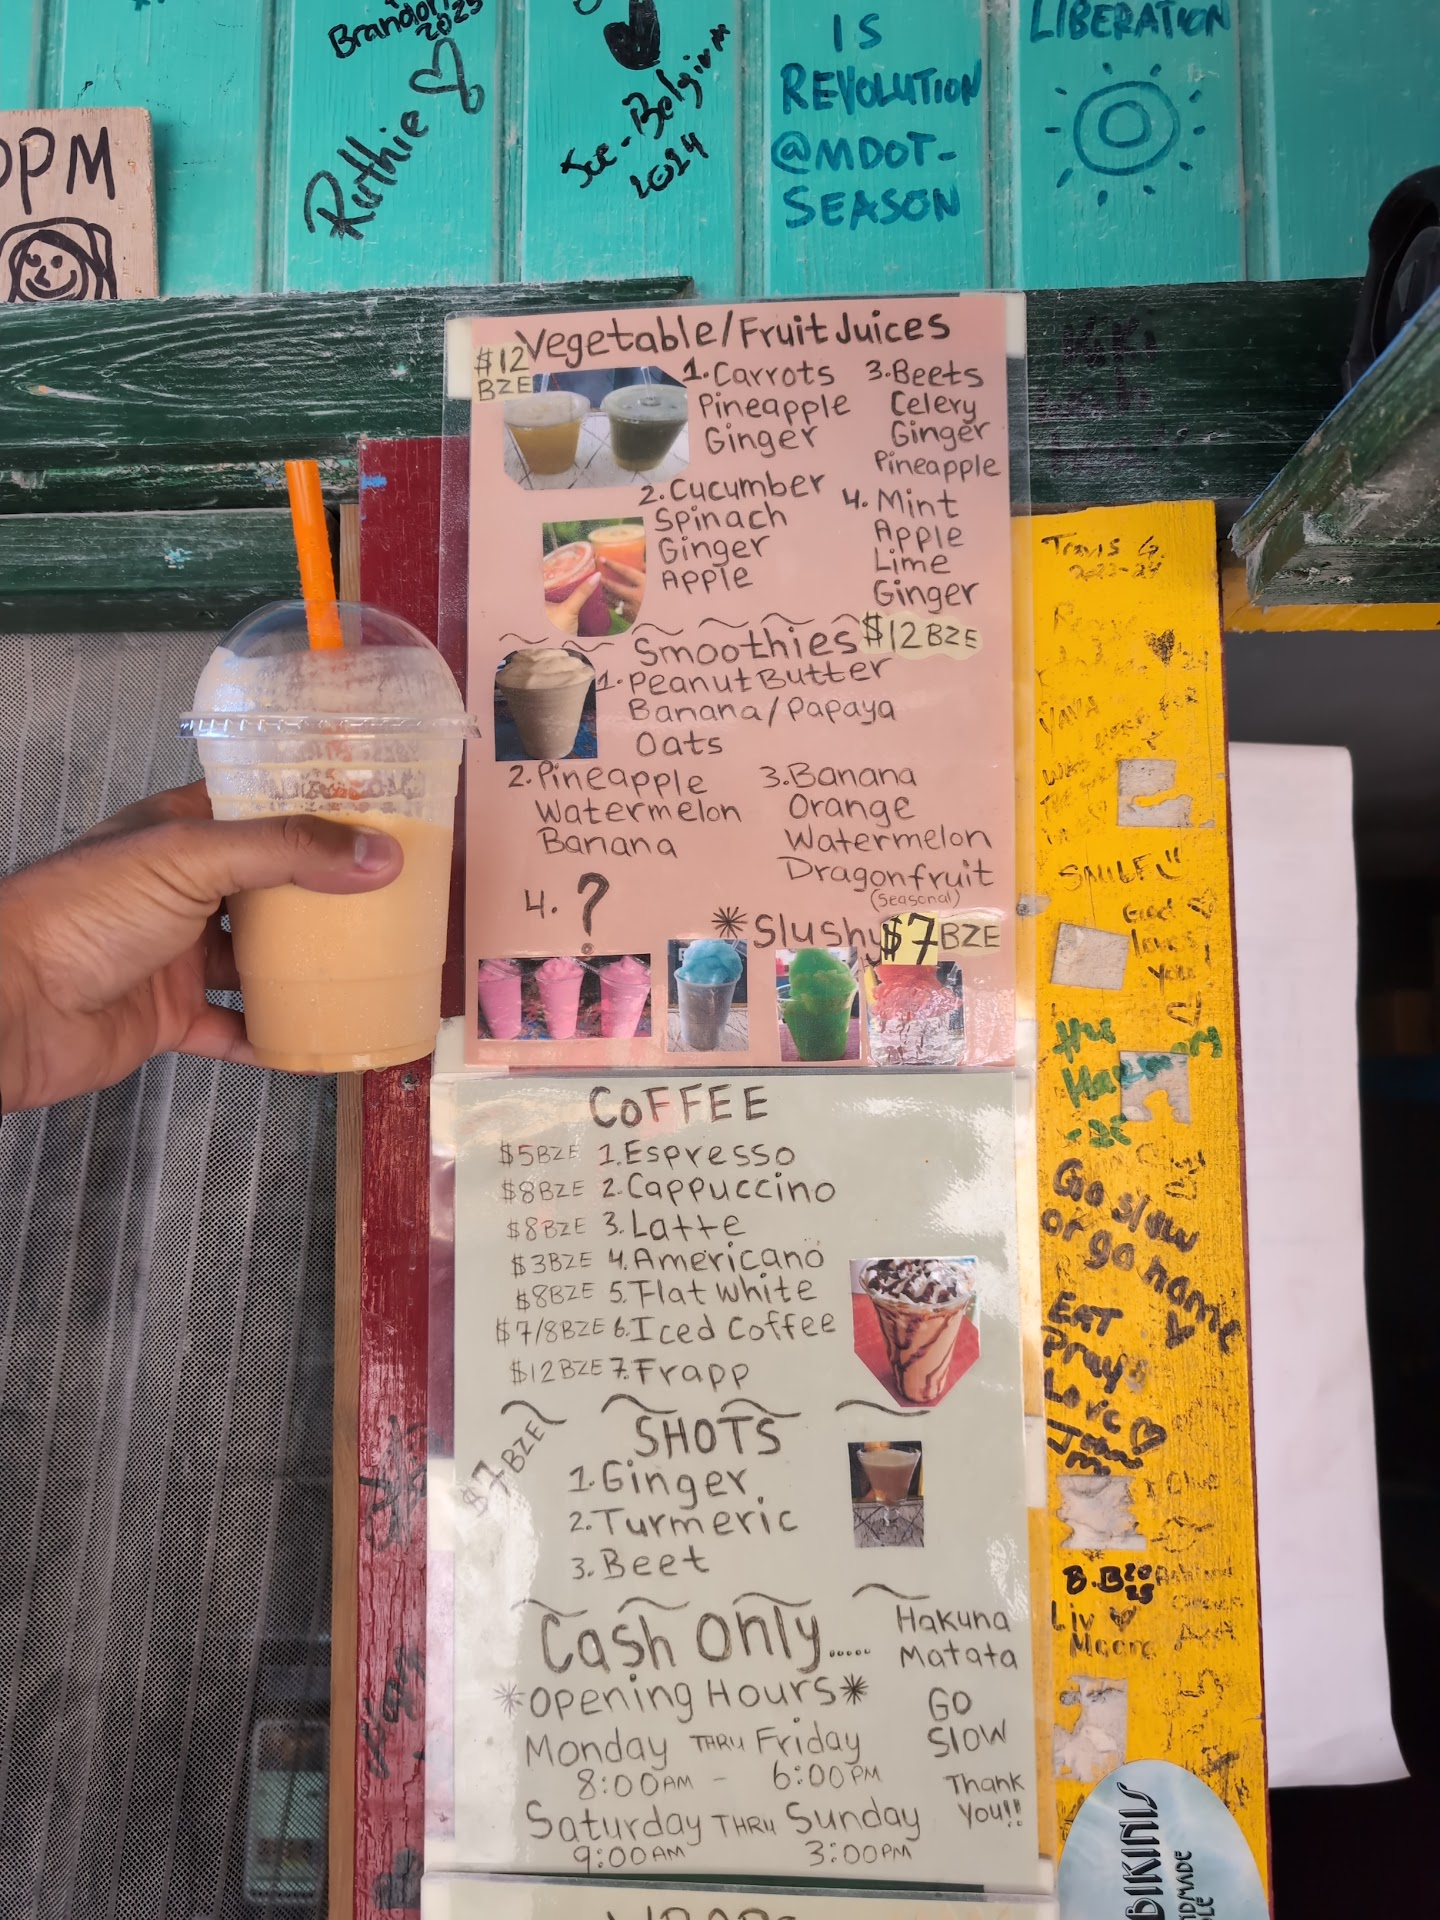 Brandon
2025
Ruthie
Joe-Belgium
2024
IS
REVOLUTION
@MDOT-
SEASON
LIBERATION
OPM
Vegetable/Fruit Juices
$12
BZE
1. Carrots
Pineapple
Ginger
3. Beets
Celery
Ginger
Pineapple
2. Cucumber
Spinach
Ginger
Apple
4. Mint
Apple
Lime
Ginger
Smoothies $12 BZE
1. Peanut Butter
Banana/Papaya
Oats
2. Pineapple
Watermelon
Banana
3. Banana
Orange
Watermelon
Dragonfruit
(Seasonal)
4. ?
*Slushy $7 BZE
COFFEE
$5BZE 1. Espresso
$8BZE 2. Cappuccino
$8BZE 3. Latte
$3BZE 4. Americano
$8BZE 5. Flat white
$7/8BZE 6. Iced Coffee
$12BZE 7. Frapp
SHOTS
$7 BZE
1. Ginger
2. Turmeric
3. Beet
Cash Only.....
Hakuna
Matata
*Opening Hours*
Monday THRU Friday
8:00AM - 6:00PM
Saturday THRU Sunday
9:00AM 3:00PM
GO
SLOW
Thank
You!!
Travis G.
SMILE
God
loves
you
Go slow
or go home
EAT
Pray
Love
Liv
Moore
BIKINIS